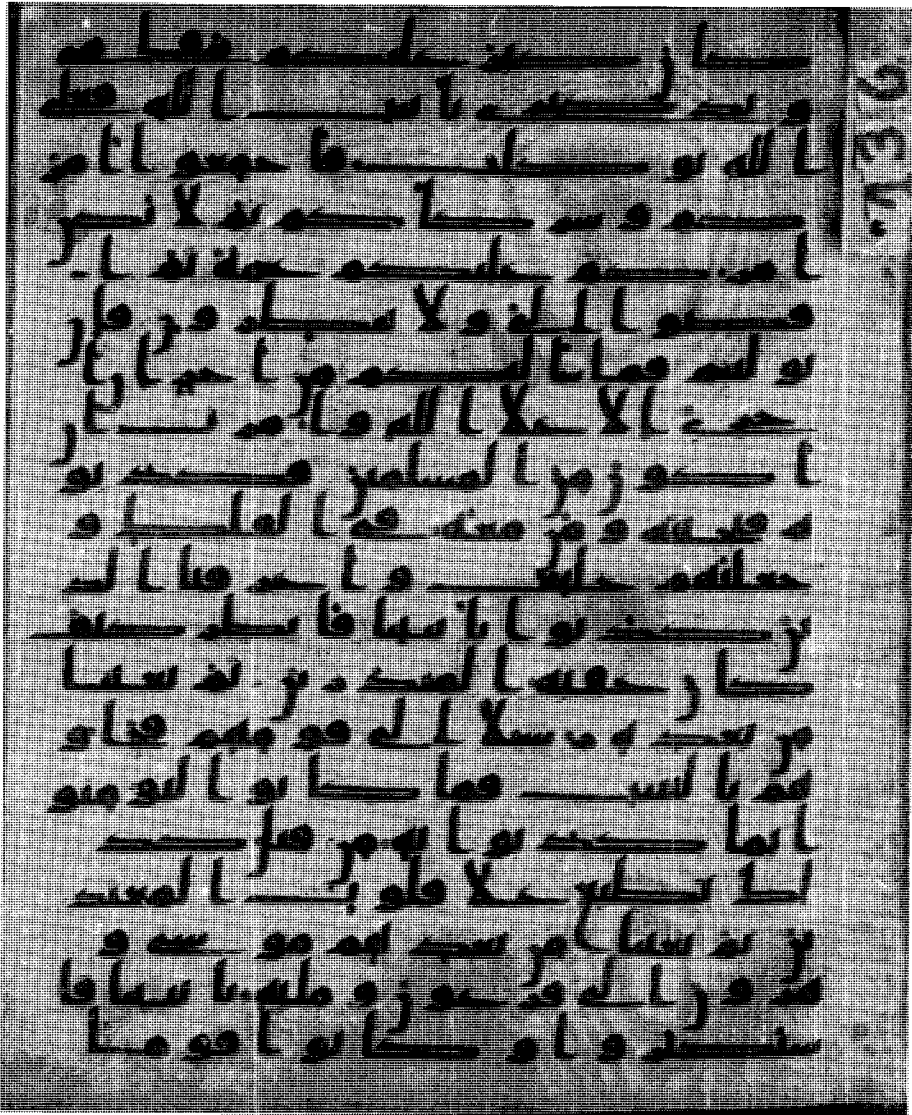 كان كبر عليكم مقامي
و تذكيري بايت الله فعلى
الله توكلت فاجمعوا امر
كم و شركاكم ثم لا يكن
امركم عليكم غمة ثم ا
قضوا الي ولا تنظرون فان
توليتم فما سالتكم من اجر ان
اجري الا علا الله وامرت ان
اكون من المسلمين فكذبو
ه فنجينه ومن معه في الفلك و
جعلنهم خليف واغرقنا الذ
ين كذبوا بايتنا فانظر كيف
كان عقبه المنذرين ثم بعثنا
من بعده رسلا الى قومهم فجاو
هم بالبينت فما كانوا ليومنو
ا بما كذبوا به من قبل كذ
لك نطبع علا قلوب المعتد
ين ثم بعثنا من بعدهم موسى و
هرون الى فرعون وملئه بايتنا فا
ستكبروا وكانوا قوما